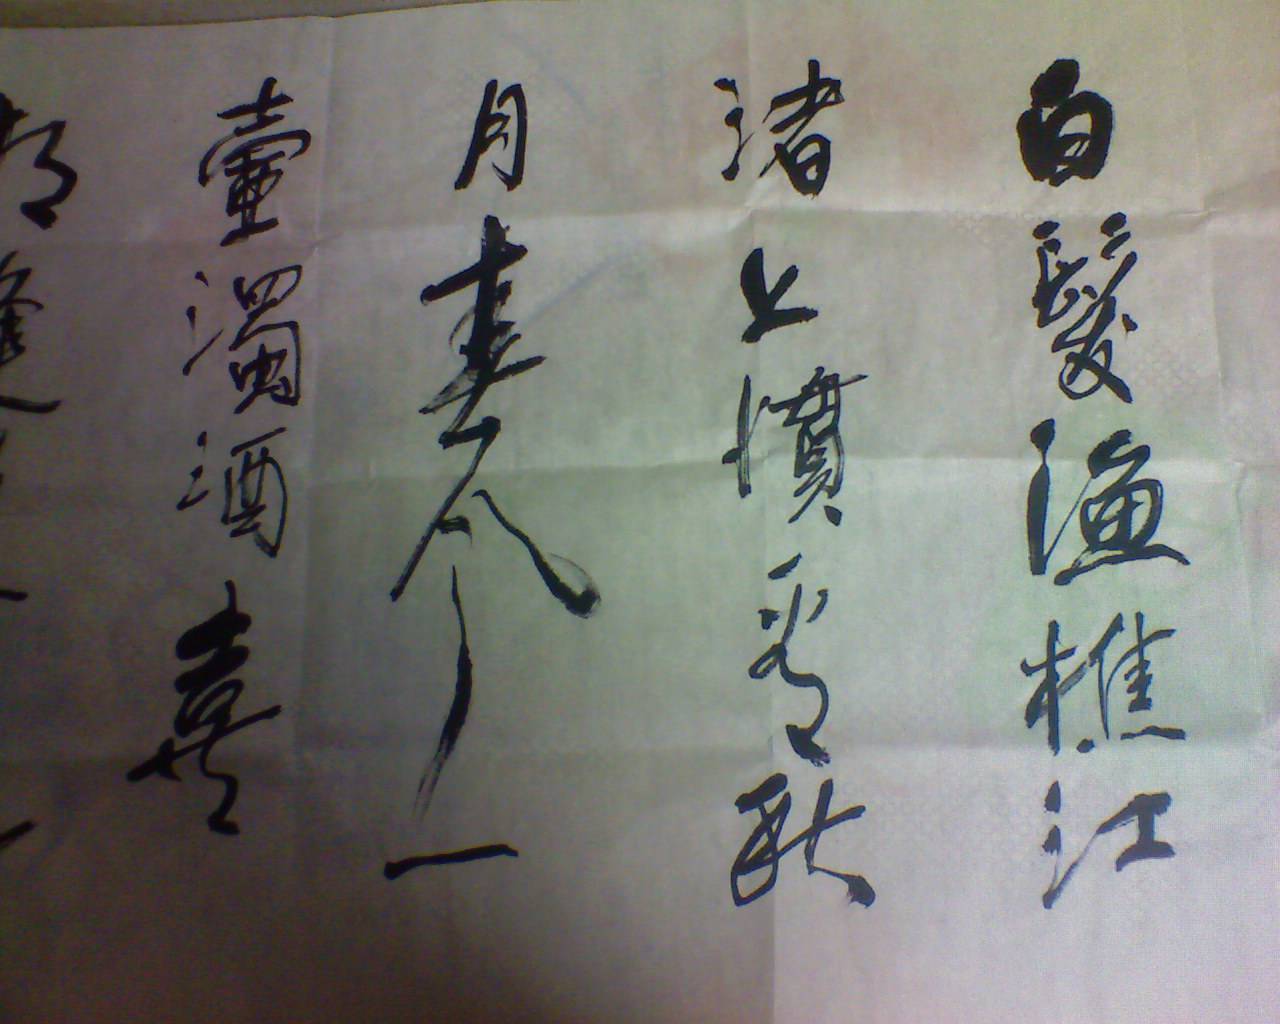 白髮渔樵江
渚上慣看秋
月春風一
壺濁酒喜
逢